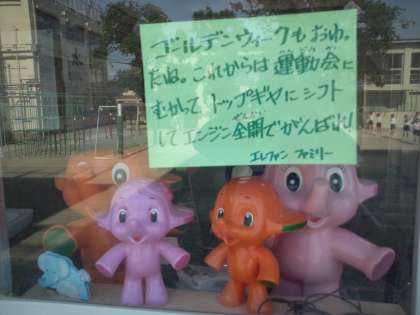 ゴールデンウィークもおわっ
たね。これからは運動会に
むかって、トップギヤにシフト
してエンジン全開でがんばれ!
エレファンファミリー